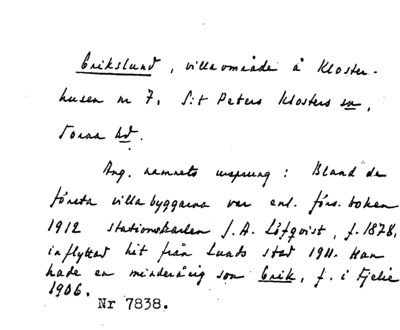 Erikslund, villaområde å Kloster-
husen nr 7, S:t Peters Klosters sn,
Torna hd.
Ang. namnets ursprung: Bland de
första villabyggarna var enl. förs.boken
1912 stationskarlen J.A. Löfqvist, f. 1878,
inflyttad hit från Lunds stad 1911. Han
hade en minderårig son Erik, f. i Fjelie
1906.
Nr 7838.